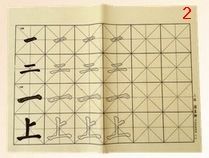 2
一 一 一 一
二 二 二 二
一 一 一 一
上 上 上 上